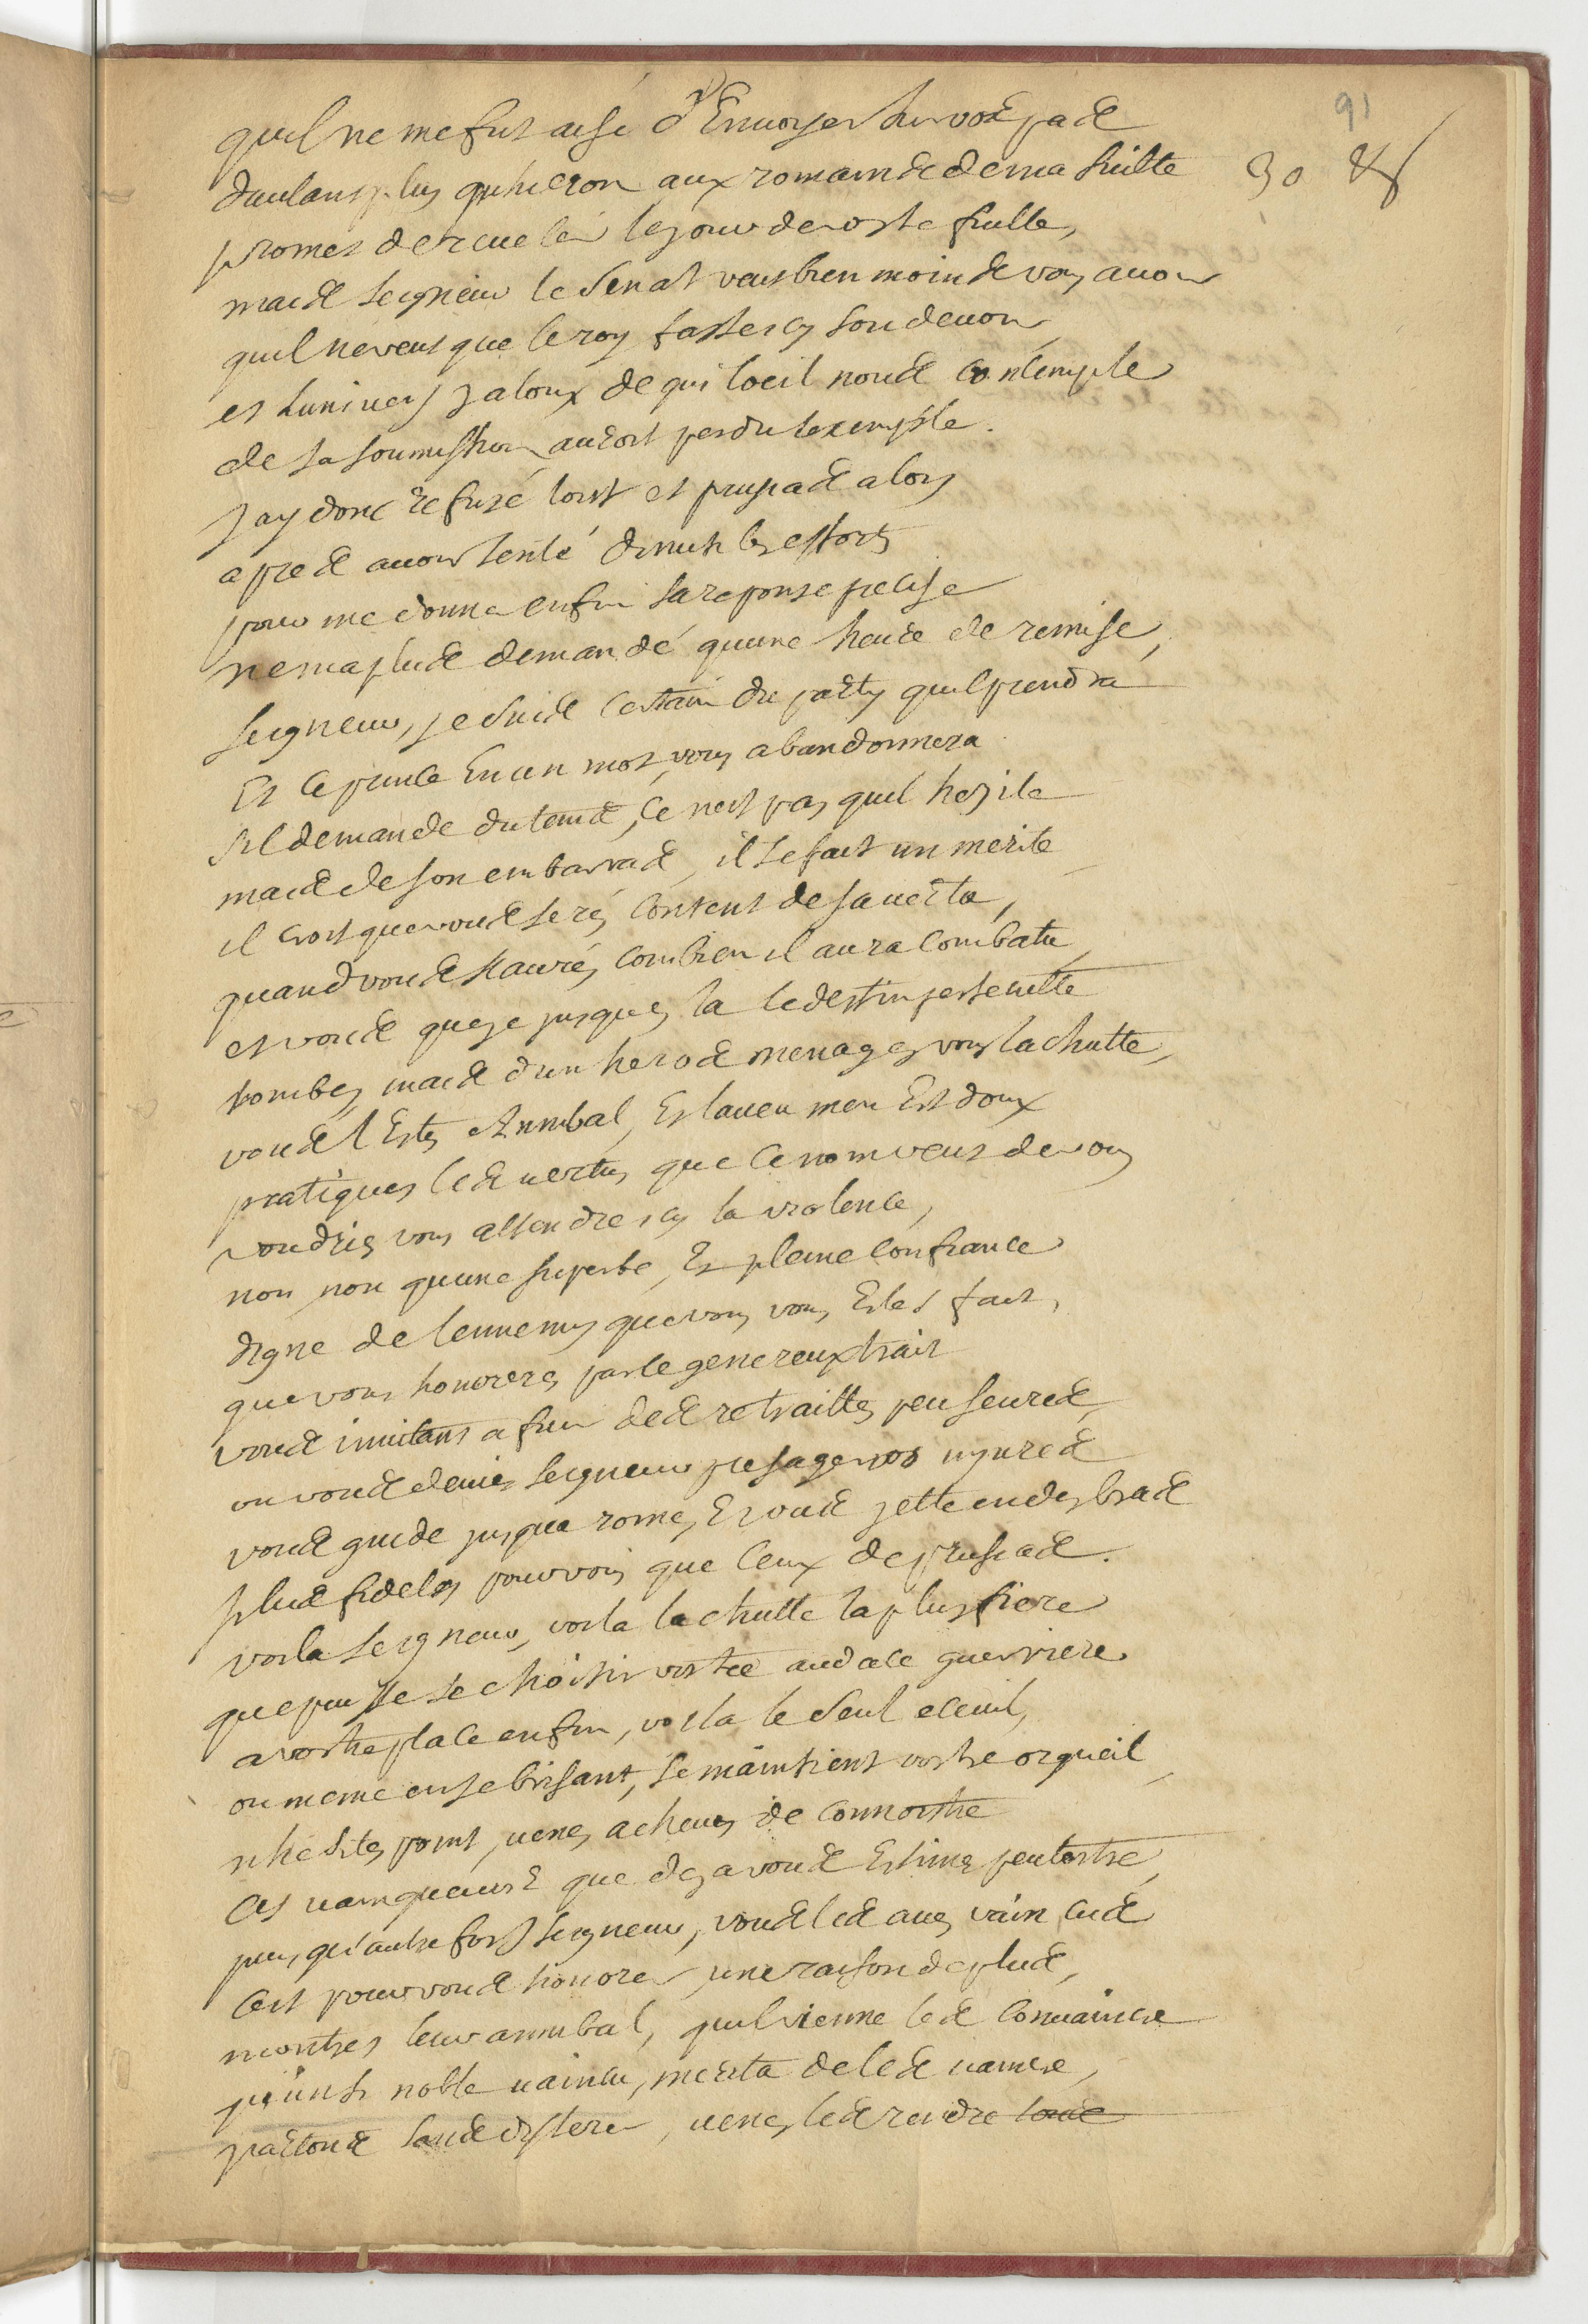 91
30
quil ne me fut aisé d'Enuoyer sur vos pas
dautans plus qu'hieron aux romains de ma suitte
promet de receler le jour de vostre fuitte,
mais seigneur le senat veut bien moins vous auoir
quil ne veut que le roy fasse icy son deuoir
et lunivers jaloux de qui loeil nous contemple
de sa soumission auroit perdu lexemple.
Jay donc refusé tout et prusias alors
apres auoir tenté diuers efforts
pour me donner enfin sa reponse precise
ne ma plus demandé quune heure de remise,
seigneur, je suis certain du party quil prendra
Et ce prince En un mot, vous abandonnera
sil demande du tems, ce nest pas quil hezite
mais de son embarras, il se fait un merite
il croit que vous serés content de sa vertu,
quand vous sçaurés combien il aura combatu
et vous que jusques la le destin persecutte
tombes, mais d'un heros menages vous la chutte,
vous l'Estes Annibal, Et laueu men Est doux
pratiques les vertus que ce nom veut de vous
voudries vous attendre icy la violence,
non non quune superbe, Et pleine confiance
digne de lennemy que vous vous Estes fait,
que vous honoreres par ce genereux trait
vous imitant a fuir des retraittes peu seures,
ou vous deuies seigneur presager vos injures
vous guide jusqua rome, Et vous jette en des bras
plus fideles pour vous que ceux de prusias.
voila seigneur, voila la chutte la plus fiere
que puisse se choisir vostre audace guerriere
a vostre place enfin, voila le seul ecueil,
ou meme en se brisant, se maintient vostre orgueil
nhesites point, venes, acheues de connoistre
ces vainqueurs que deja vous Estimes peutestre,
puis, qu'autrefois seigneur, vous les aues vaincus
cest pour vous honorer une raison de plus,
montres leur annibal, quil vienne les conuaincre
qu'un si noble vaincu, merita de les vaincre,
partons sans differer, venes les rendre tous